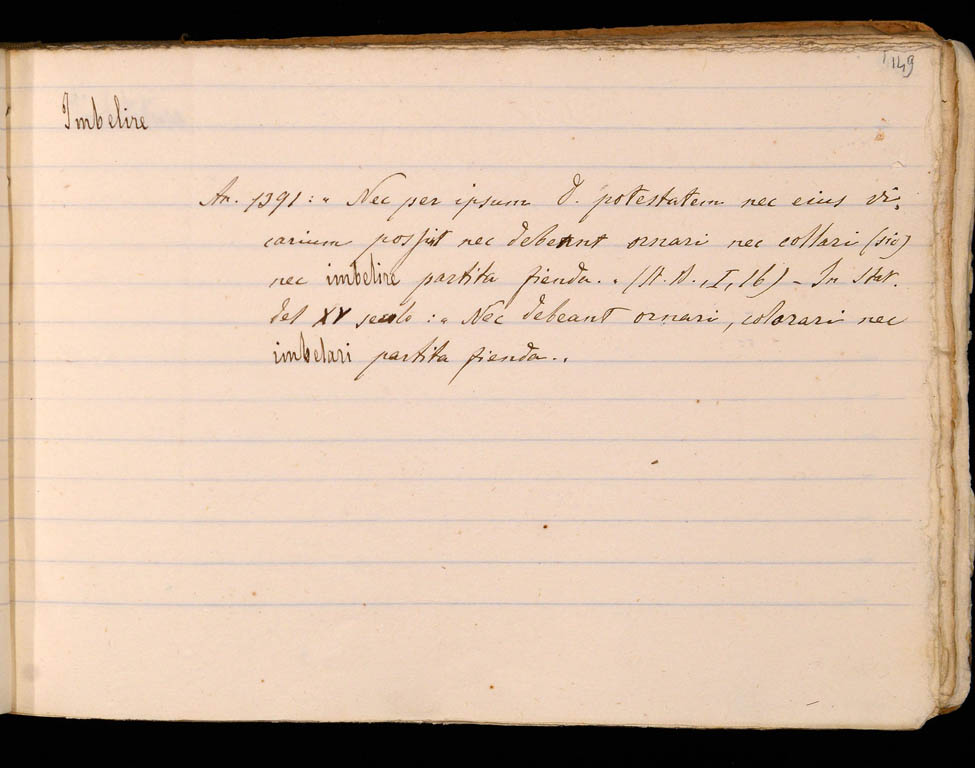 149
Imbelire
An. 1391: „ Nec per ipsum D. potestatem nec eius vi-
carium possit nec debeant ornari nec collari (sic)
nec imbelire partita fienda. „ (St. D., I, 16) – In Stat.
del XV secolo: „ Nec debeant ornari, colorari nec
imbelari partita fienda. „